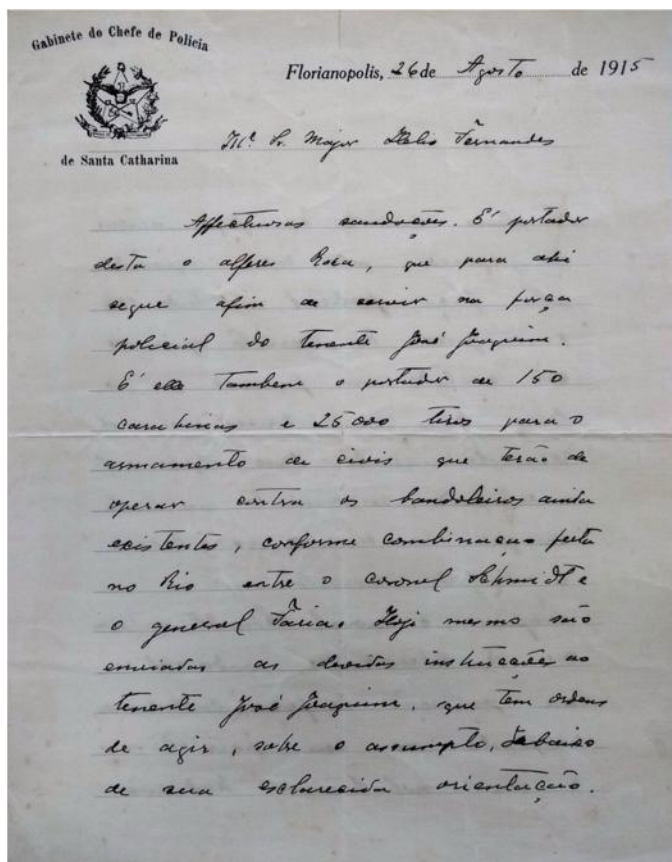 Gabinete do Chefe de Policia
de Santa Catharina
Florianopolis, 26 de Agosto de 1915
Sr. Major Fernandes
Affectuosas saudações. E' portador
desta o alferes Rosa, que para ahi
segue afim de servir na força
policial do tenente José Joaquim.
E' elle tambem o portador de 150
carabinas e 25000 tiros para o
armamento de civis que terão de
operar contra os bandoleiros ainda
existentes, conforme combinação feita
no Rio entre o coronel Schmidt e
o general Faria. Hoje mesmo são
enviadas as devidas instrucções ao
tenente José Joaquim, que tem ordens
de agir, sobre o assumpto, debaixo
de sua esclarecida orientação.